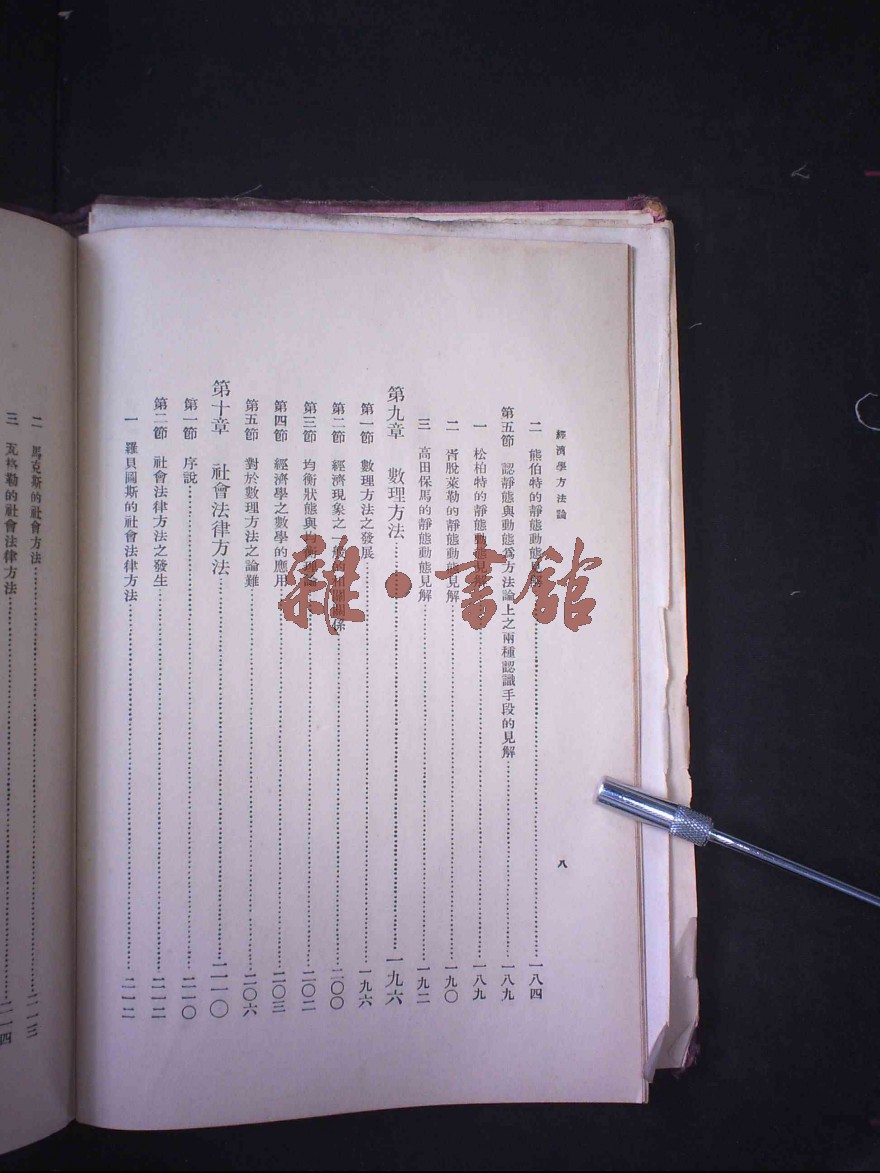 經濟學方法論
八
二 熊伯特的靜態動態見解……一八四
第五節 認靜態與動態爲方法論上之兩種認識手段的見解……一八九
一 松柏特的靜態動態見解……一八九
二 胥脫萊勒的靜態動態見解……一九〇
三 高田保馬的靜態動態見解……一九二
第九章 數理方法……一九六
第一節 數理方法之發展……一九六
第二節 經濟現象之一般的相關關係……二〇〇
第三節 均衡狀態與均衡理論……二〇二
第四節 經濟學之數學的應用……二〇三
第五節 對於數理方法之論難……二〇六
第十章 社會法律方法……二一〇
第一節 序說……二一〇
第二節 社會法律方法之發生……二一二
一 羅貝圖斯的社會法律方法……二一二
二 馬克斯的社會方法……二一三
三 瓦格勒的社會法律方法……二一四
雜·書館